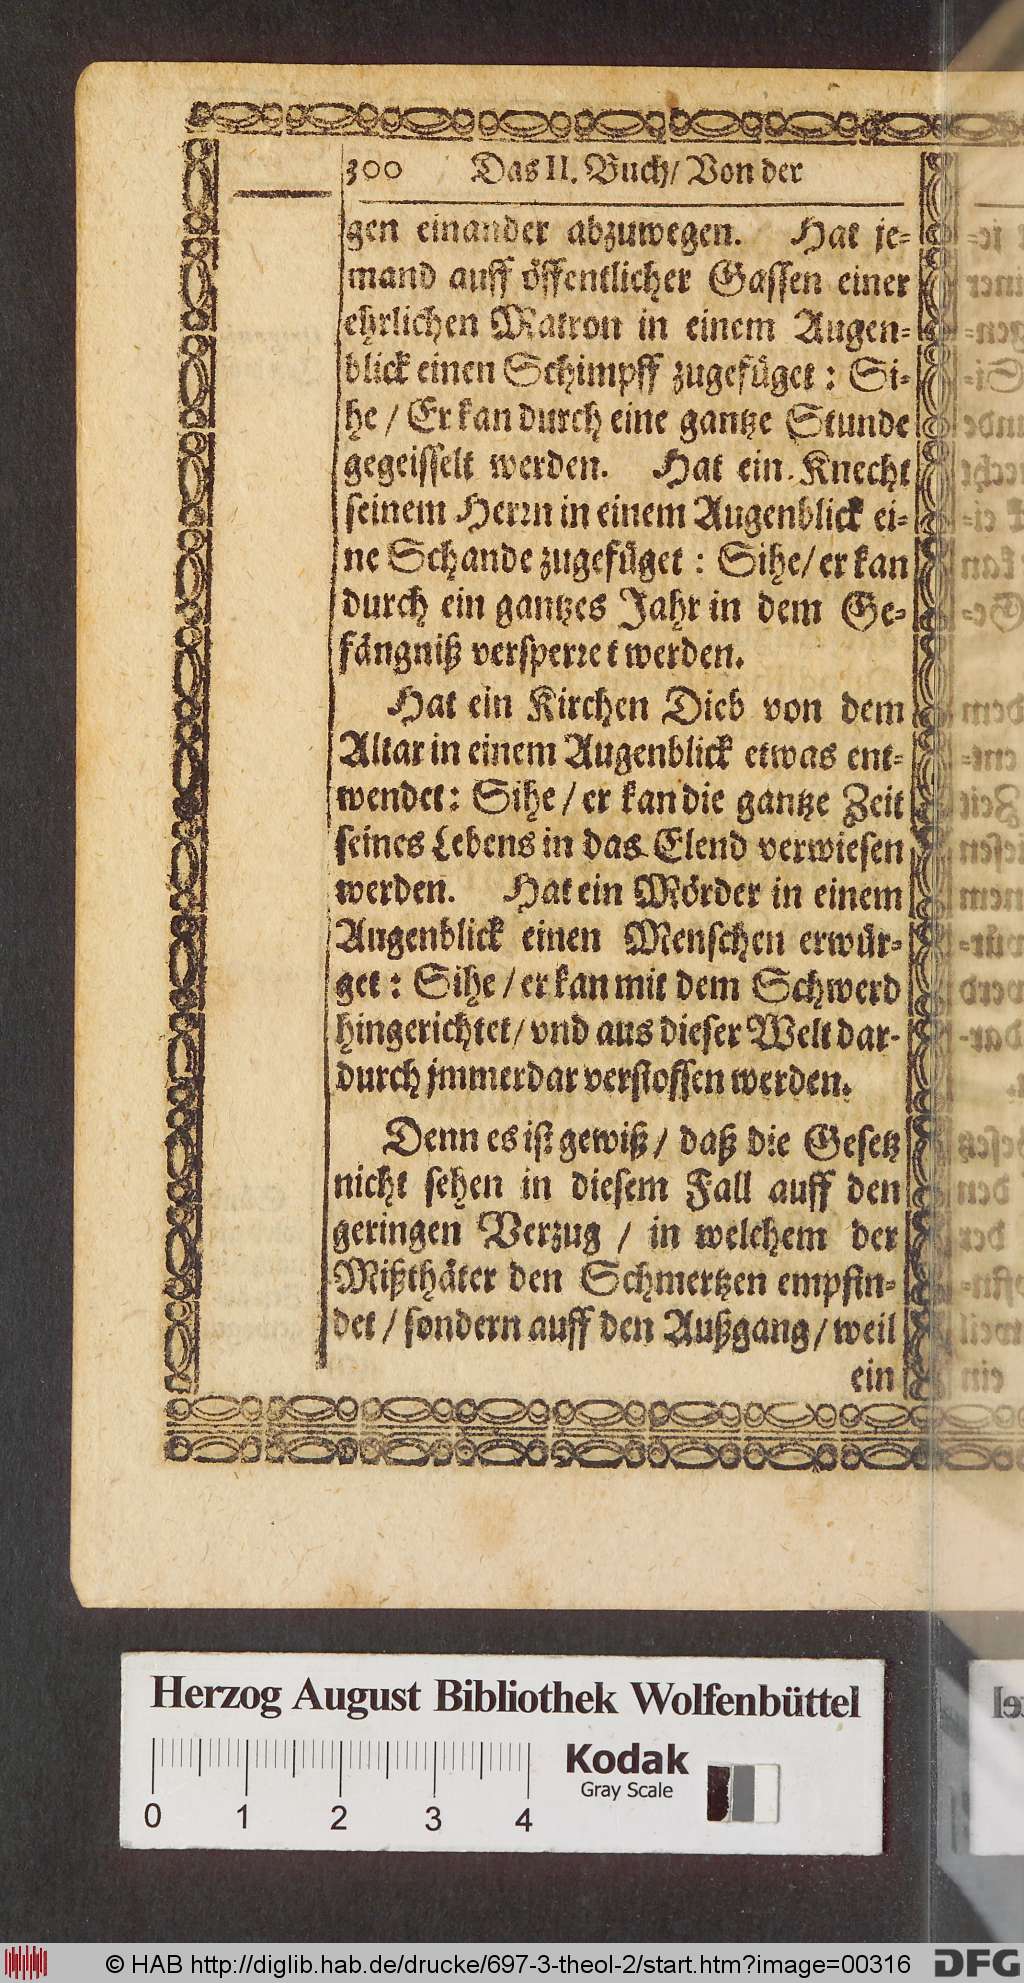 300 Das II. Buch/ Von der
gen einander abzuwegen. Hat je-
mand auff öffentlicher Gassen einer
ehrlichen Matron in einem Augen-
blick einen Schimpff zugefüget: Si-
he / Er kan durch eine gantze Stunde
gegeisselt werden. Hat ein Knecht
seinem Herrn in einem Augenblick ei-
ne Schande zugefüget: Sihe/ er kan
durch ein gantzes Jahr in dem Ge-
fängniß versperret werden.
Hat ein Kirchen Dieb von dem
Altar in einem Augenblick etwas ent-
wendet: Sihe / er kan die gantze Zeit
seines Lebens in das Elend verwiesen
werden. Hat ein Mörder in einem
Augenblick einen Menschen erwür-
get: Sihe / er kan mit dem Schwerd
hingerichtet/ vnd aus dieser Welt dar-
durch jmmerdar verstossen werden.
Denn es ist gewiß / daß die Gesetz
nicht sehen in diesem Fall auff den
geringen Verzug / in welchem der
Mißthäter den Schmertzen empfin-
det / sondern auff den Außgang / weil
ein
Herzog August Bibliothek Wolfenbüttel
Kodak
Gray Scale
0 1 2 3 4
© HAB http://diglib.hab.de/drucke/697-3-theol-2/start.htm?image=00316
DFG